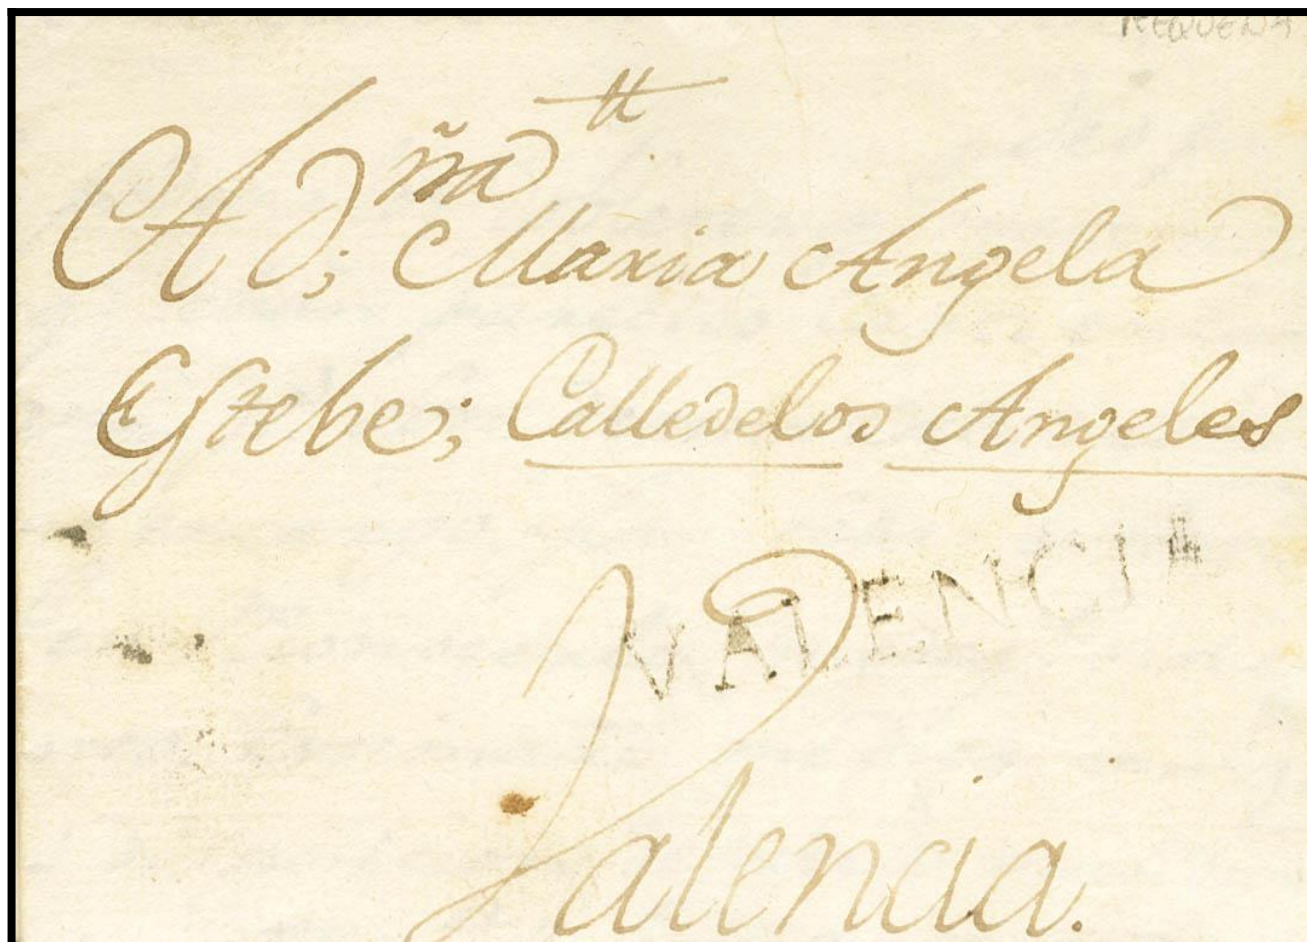 REQUENA
A D,ña Maria Angela
Estebe; Calledelos Angeles
VALENCIA
Valencia.